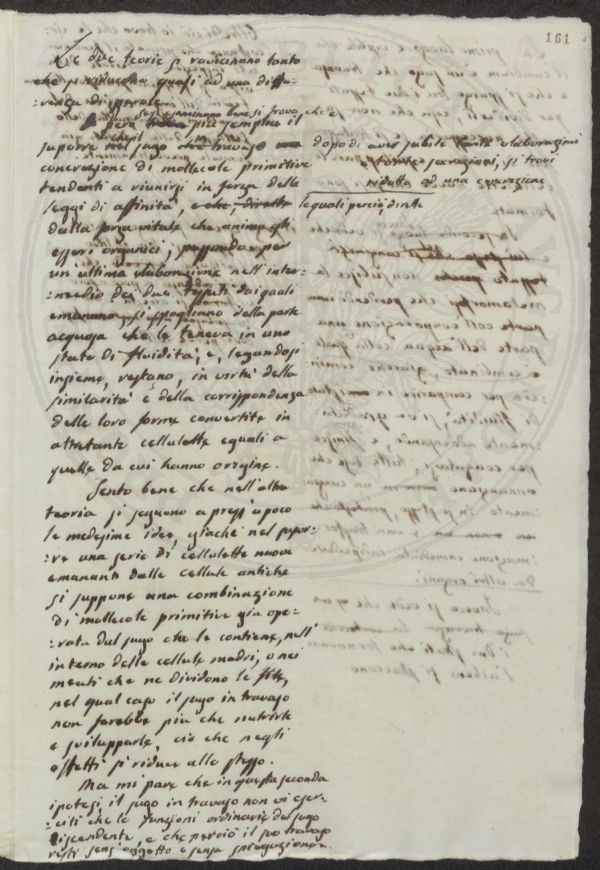 161
Le due teorie si ravvicinano tanto
che si riducono quasi ad una diffe-
-renza di parole.
Se esaminiamo bene si trova, che è
più semplice il
suporre che il sugo in travaglio dopo di aver subite tante elaborazioni
e tante secrezioni, si trovi
ridotto ad una
concrezione di mollecole primitive
tendenti a riunirsi in forza delle
leggi di affinità, e che, dirette le quali perciò, dirette
dalla forza vitale che anima gli
esseri organici, passando per
un ultima elaborazione nell'inter-
-medio dei due tessuti dai quali
emanano, si spogliano della parte
acquosa che le teneva in uno
stato di fluidità, e, legandosi
insieme, restano, in virtù della
similarità e della corrispondenza
delle loro forme convertite in
altretante cellulette eguali a
quelle da cui hanno origine.
Sento bene che nell'altra
teoria si seguono a press'a poco
le medesime idee, giacchè nel supor-
-re una serie di cellulette nuove
emananti dalle cellule antiche
si suppone una combinazione
di mollecole primitive già ope-
-rata dal sugo che le contiene, nell'
interno delle cellule madri, o nei
meati che ne dividono le file,
nel qual caso il sugo in travaglio
non farebbe più che nutrirle
e svilupparle, ciò che negli
effetti si riduce allo stesso.
Ma mi pare che in questa seconda
ipotesi il sugo in travaglio non vi eser-
-citi che le funzioni ordinarie del sugo
discendente, e che perciò il suo travaglio
resti senz'oggetto e senza spiegazione.